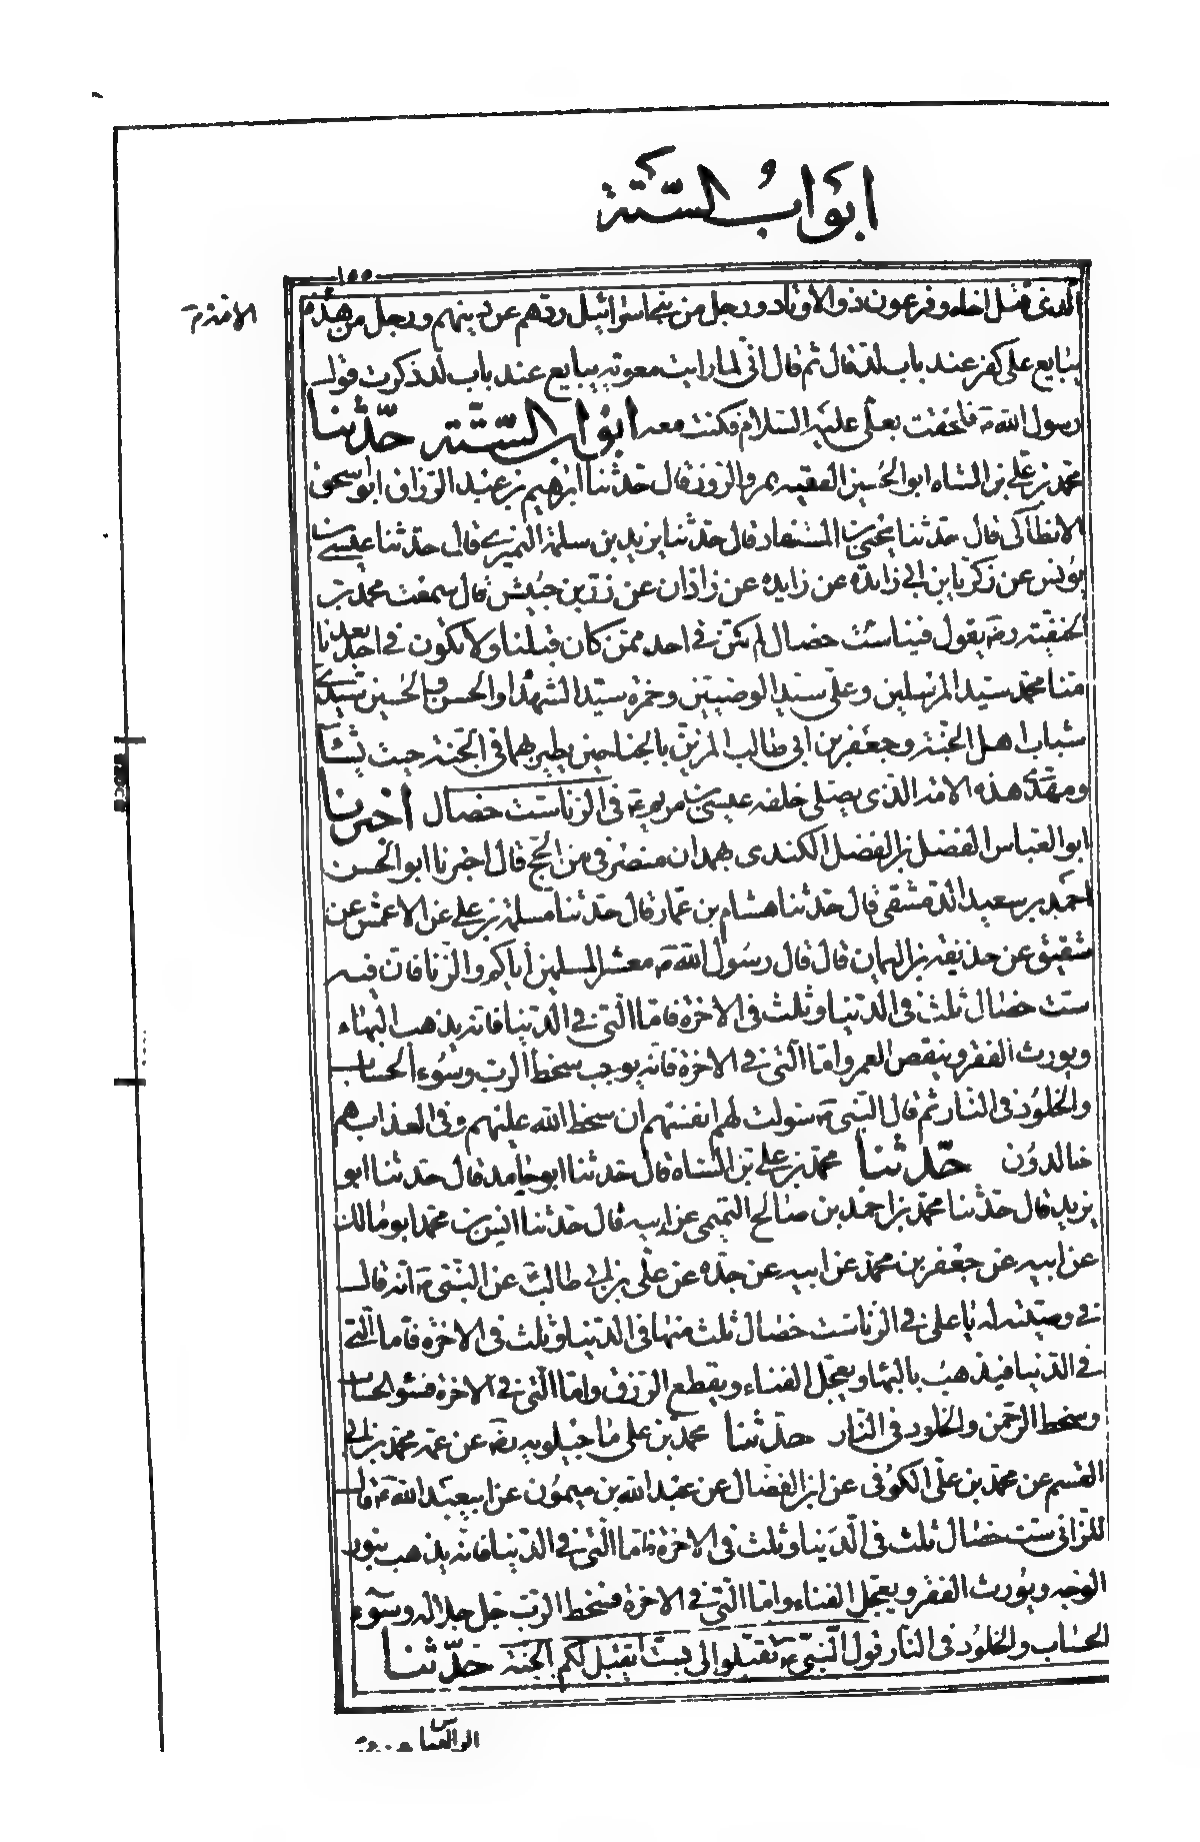 ابواب الستة
١٥٥
الامة م
الذى قتل اخاه وفرعون ذو الاوتاد ورجل من بنى اسرائيل ردهم عن دينهم ورجل من هذه
يبايع على كفر عند باب لد قال ثم قال انى لما رايت معوية يبايع عند باب لد ذكرت قول
رسول الله ص فلحقت بعلى عليه السلام فكنت معه ابواب الستة حدثنا
محمد بن على بن الشاه ابو الحسين الفقيه بمرو الروذ قال حدثنا ابرهيم بن عبد الرزاق ابو اسحق
الانطاكى قال حدثنا يحيى بن المستفاد قال حدثنا يزيد بن سلمة النميرى قال حدثنا عيسى بن
يونس عن زكريا بن ابى زايدة عن زايده عن زاذان عن زر بن حبيش قال سمعت محمد بن
الحنفية رض يقول فينا ست خصال لم تكن فى احد ممن كان قبلنا ولا تكون فى احد بعدنا
منا محمد سيد المرسلين وعلى سيد الوصيين وحمزة سيد الشهداء والحسن والحسين سيدى
شباب اهل الجنة وجعفر بن ابى طالب المزين بالجناحين يطير بهما فى الجنة حيث يشاء
ومهدى هذه الامة الذى يصلى خلفه عيسى بن مريم ع فى الزنا ست خصال اخبرنا
ابو العباس الفضل بن الفضل الكندى بهمدان منصرفى من الحج قال اخبرنا ابو الحسن
احمد بن سعيد الدمشقى قال حدثنا هشام بن عمار قال حدثنا مسلمة بن على عن الاعمش عن
شقيق عن حذيفة بن اليمان قال قال رسول الله ص معشر المسلمين اياكم والزنا فان فيه
ست خصال ثلث فى الدنيا وثلث فى الاخرة فاما التى فى الدنيا فانه يذهب البهاء
ويورث الفقر وينقص العمر واما التى فى الاخرة فانه يوجب سخط الرب وسوء الحساب
والخلود فى النار ثم قال النبى ص سولت لهم انفسهم ان سخط الله عليهم وفى العذاب هم
خالدون حدثنا محمد بن على بن الشاه قال حدثنا ابو حامد قال حدثنا ابو
يزيد قال حدثنا محمد بن احمد بن صالح التميمى عن ابيه قال حدثنا انس بن محمد ابو مالك
عن ابيه عن جعفر بن محمد عن ابيه عن جده عن على بن ابى طالب عن النبى ص انه قال
فى وصيته له يا على فى الزنا ست خصال ثلث منها فى الدنيا وثلث فى الاخرة فاما التى
فى الدنيا فيذهب بالبهاء ويعجل الفناء ويقطع الرزق واما التى فى الاخرة فسوء الحساب
وسخط الرحمن والخلود فى النار حدثنا محمد بن على ماجيلويه رض عن عمه محمد بن ابى
القسم عن محمد بن على الكوفى عن ابن الفضال عن عبد الله بن ميمون عن ابيعبد الله ع قال
للزانى ست خصال ثلث فى الدنيا وثلث فى الاخرة فاما التى فى الدنيا فانه يذهب بنور
الوجه ويورث الفقر ويعجل الفناء واما التى فى الاخرة فسخط الرب جل جلاله وسوء
الحساب والخلود فى النار قول النبى ص تقبلوا الى بست اتقبل لكم الجنة حدثنا